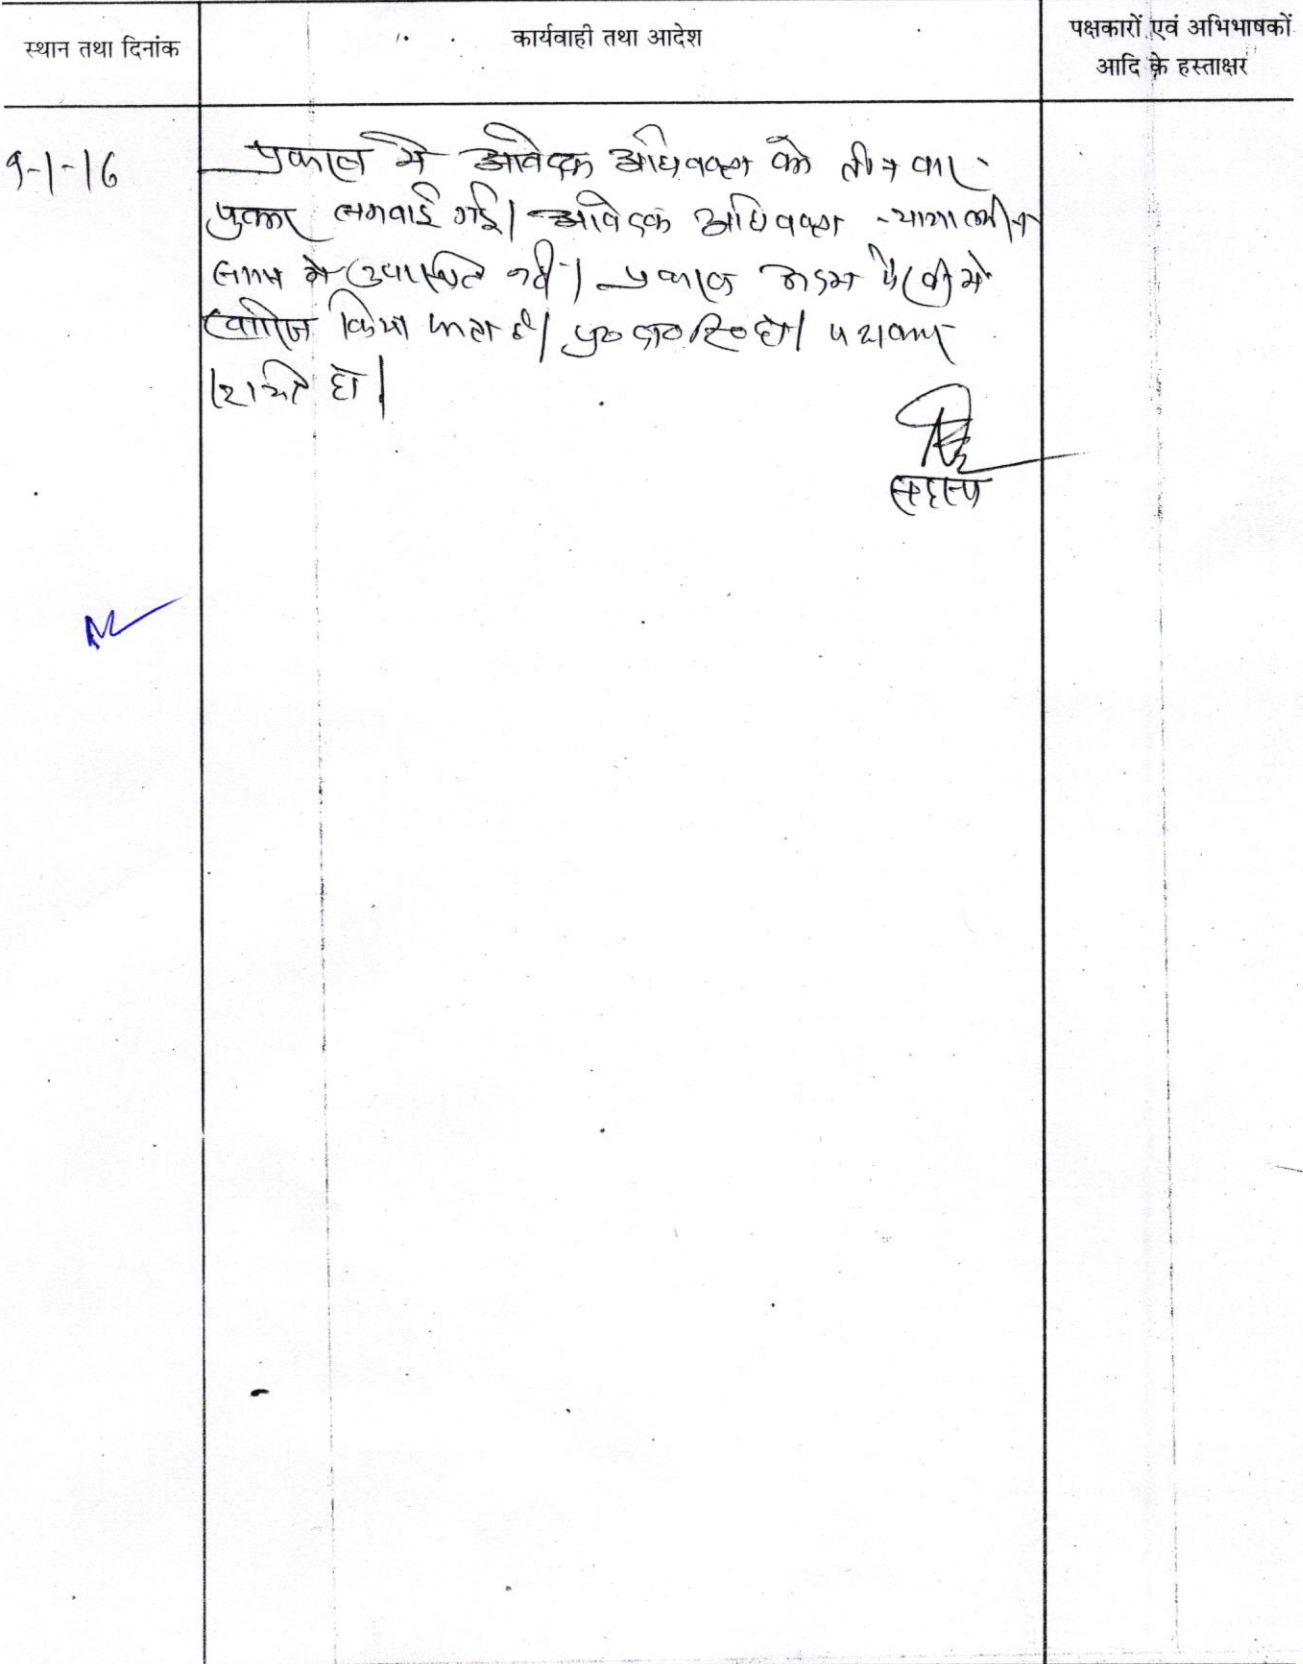 स्थान तथा दिनांक
कार्यवाही तथा आदेश
पक्षकारों एवं अभिभाषकों
आदि के हस्ताक्षर
9-1-16
प्रकरण में आवेदक अधिवक्ता को तीन बार
पुकार लगवाई गई। आवेदक अधिवक्ता न्यायालयीन
समय में उपस्थित नहीं। प्रकरण अदम पैरवी में
खारिज किया जाता है। प्र० दा० रि० हो। पक्षकार
सूचित हो।
सदस्य